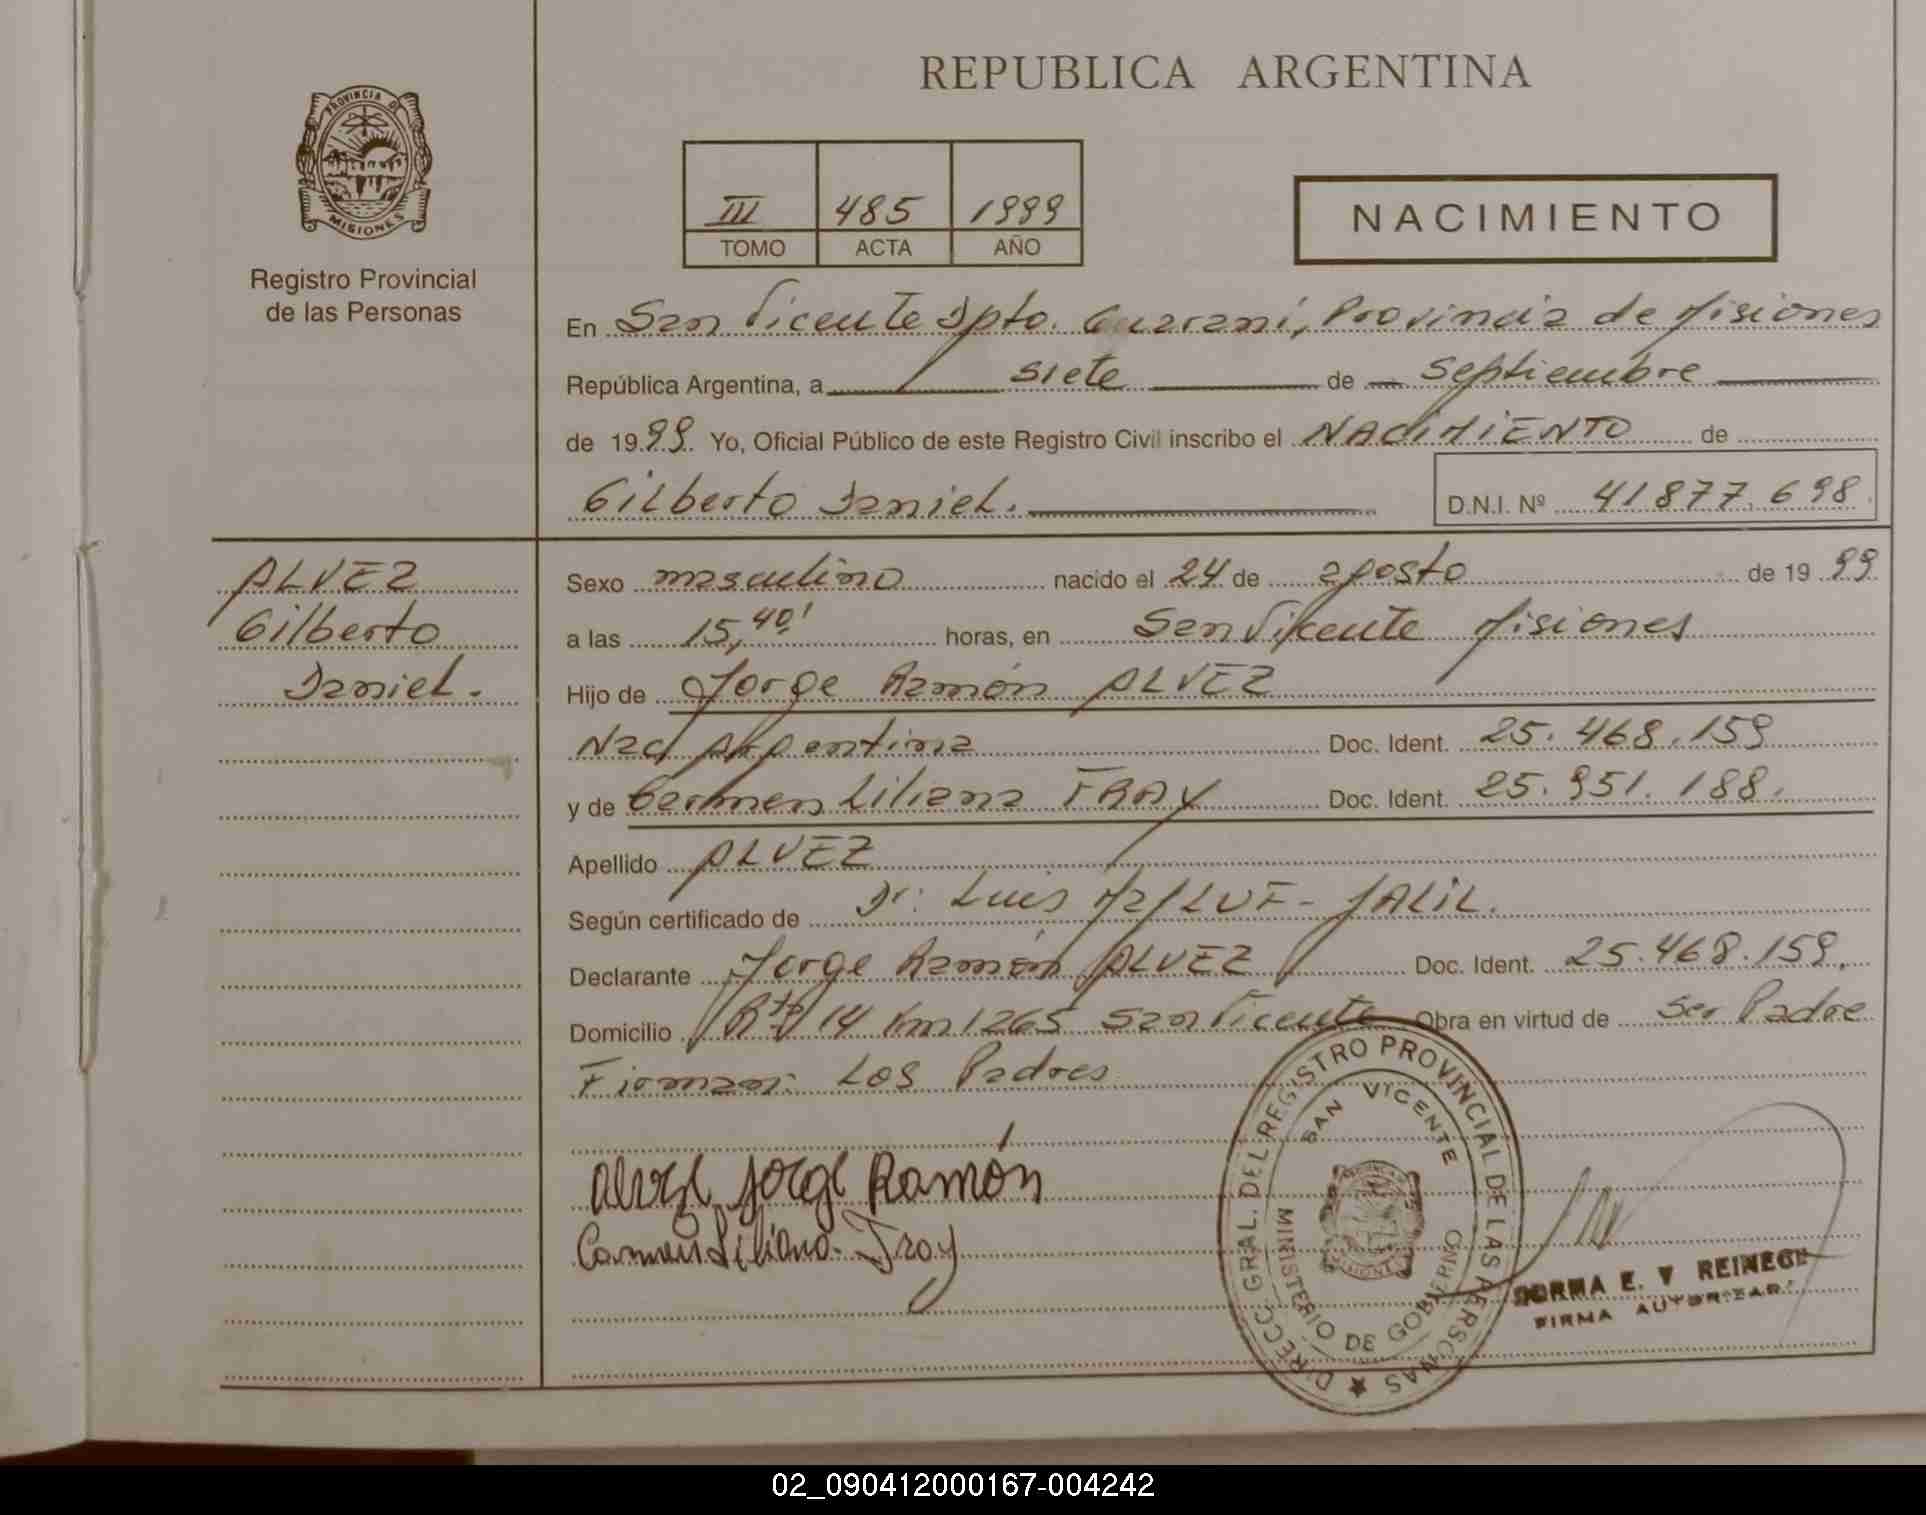 REPUBLICA ARGENTINA
PROVINCIA DE
MISIONES
Registro Provincial
de las Personas
III 485 1999
TOMO ACTA AÑO
NACIMIENTO
En San Vicente Dpto. Guaraní, Provincia de Misiones
República Argentina, a siete de Septiembre
de 1999. Yo, Oficial Público de este Registro Civil inscribo el NACIMIENTO de
Gilberto Daniel.
D.N.I. Nº 41877.698.
ALVEZ
Gilberto
Daniel.
Sexo masculino nacido el 24 de agosto de 1999
a las 15,40' horas, en San Vicente Misiones
Hijo de Jorge Ramón ALVEZ
Nac Argentina Doc. Ident. 25.468.159
y de Carmen Liliana FRAY Doc. Ident. 25.951.188.
Apellido ALVEZ
Según certificado de Dr: Luis JALIL.
Declarante Jorge Ramón ALVEZ Doc. Ident. 25.468.159.
Domicilio Rta 14 Km 1265 San Vicente Obra en virtud de Ser Padre
Firman: Los Padres
Alvez Jorge Ramón
Carmen Liliana. Fray
DIRECC. GRAL. DEL REGISTRO PROVINCIAL DE LAS PERSONAS
SAN VICENTE
MINISTERIO DE GOBIERNO
NORMA E. V REINEGE
FIRMA AUTORIZADA
02_090412000167-004242